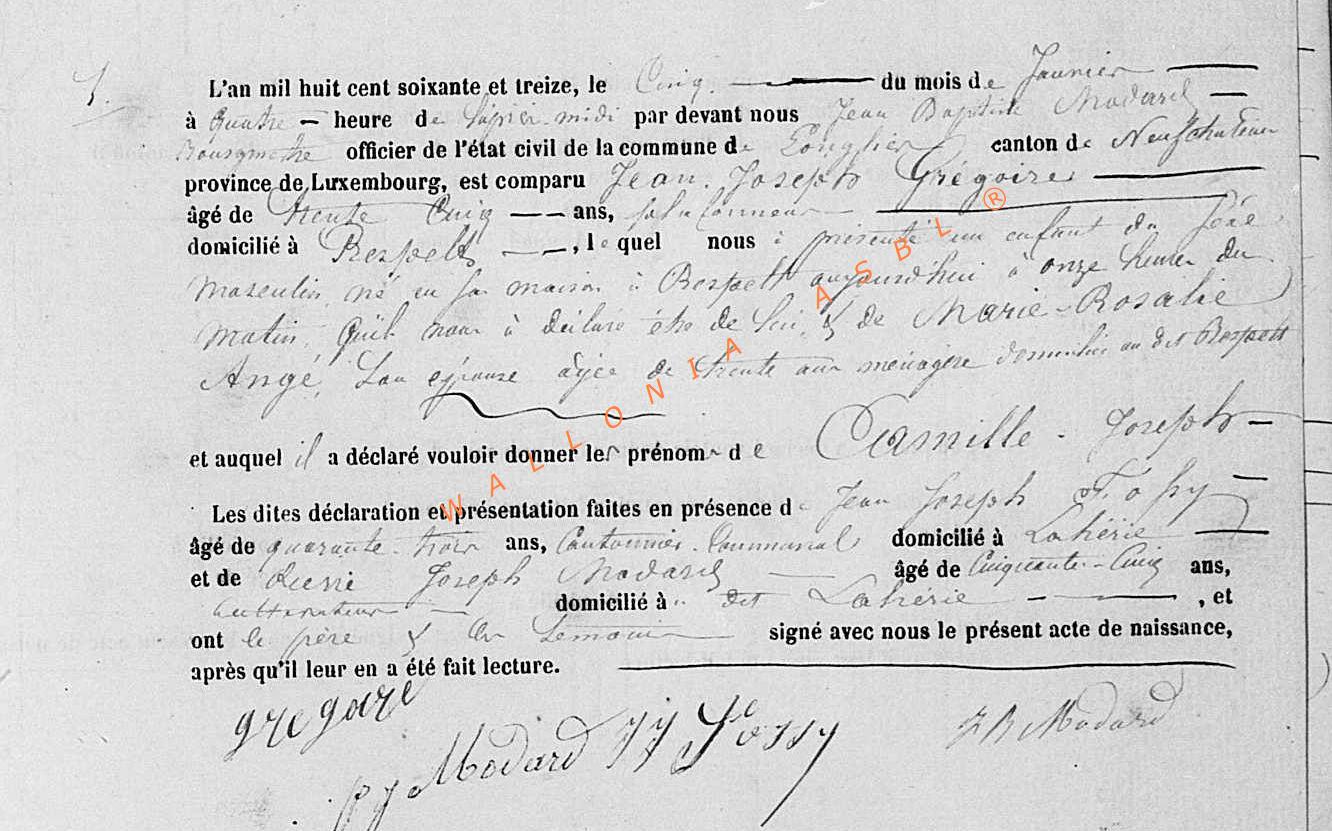 1.
L'an mil huit cent soixante et treize, le Cinq du mois de Janvier
à quatre heure de l'après midi par devant nous Jean Baptiste Modard
Bourgmestre officier de l'état civil de la commune de Longlier canton de Neufchateau
province de Luxembourg, est comparu Jean Joseph Grégoire
âgé de trente Cinq ans,
domicilié à Respelt, le quel nous à présenté un enfant du Sexe
Masculin, né en sa maison à Respelt aujourd'hui à onze heures du
matin, qu'il nous à déclaré être de lui & de Marie-Rosalie
Angé, son épouse agée de trente ans ménagère domiciliée au dit Respelt
et auquel il a déclaré vouloir donner les prénoms de Camille - Joseph
Les dites déclaration et présentation faites en présence de Jean Joseph
âgé de quarante-trois ans, Cantonnier Communal domicilié à Lahérie
et de Joseph Modard âgé de Cinquante-Cinq ans,
Cultivateur domicilié à dit Lahérie, et
ont le père & les témoins signé avec nous le présent acte de naissance,
après qu'il leur en a été fait lecture.
gregoire
Modard JJ
JB Modard
WALLONIA ASBL ®